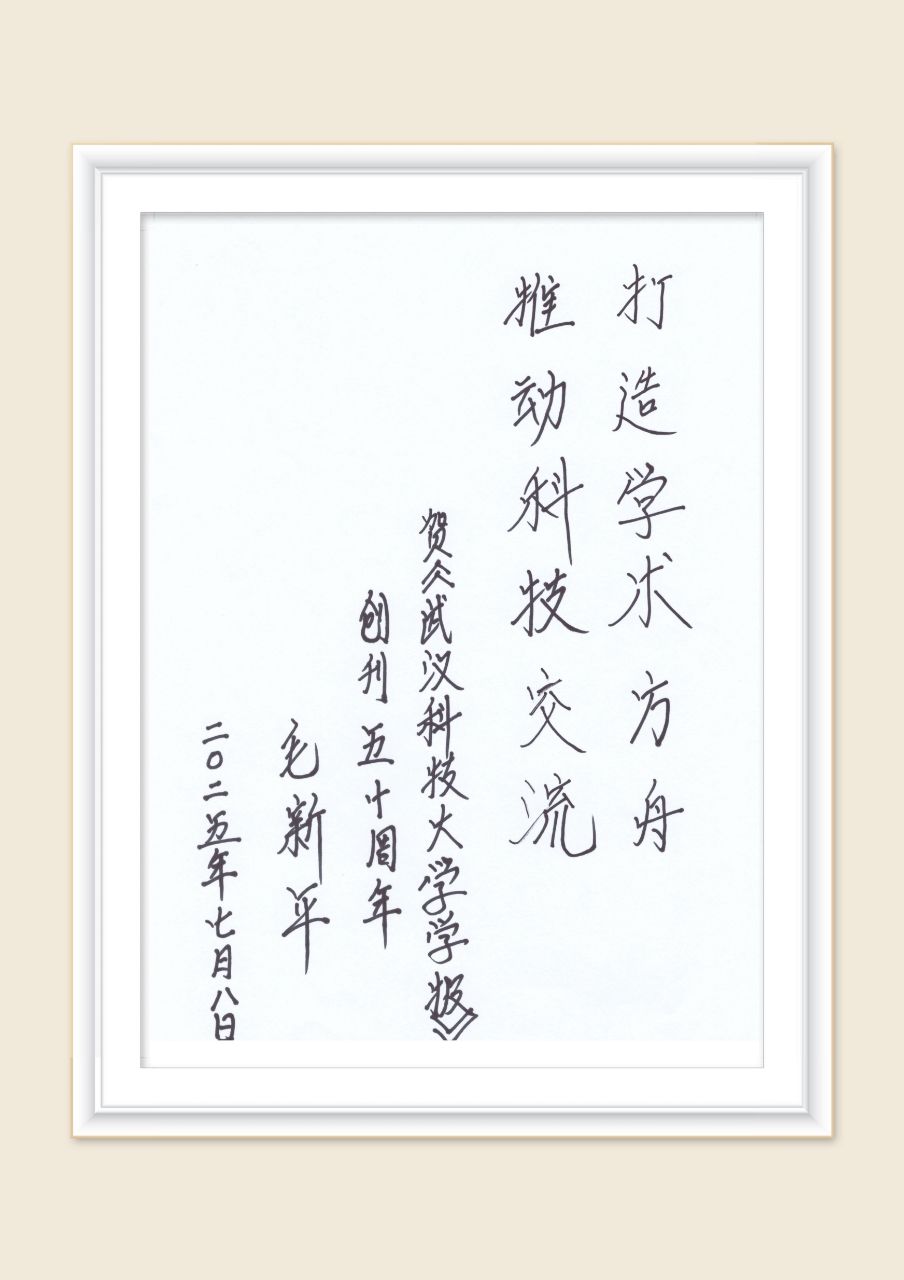 打造学术方舟
推动科技交流
贺《武汉科技大学学报》
创刊五十周年
毛新平
二〇二五年七月八日